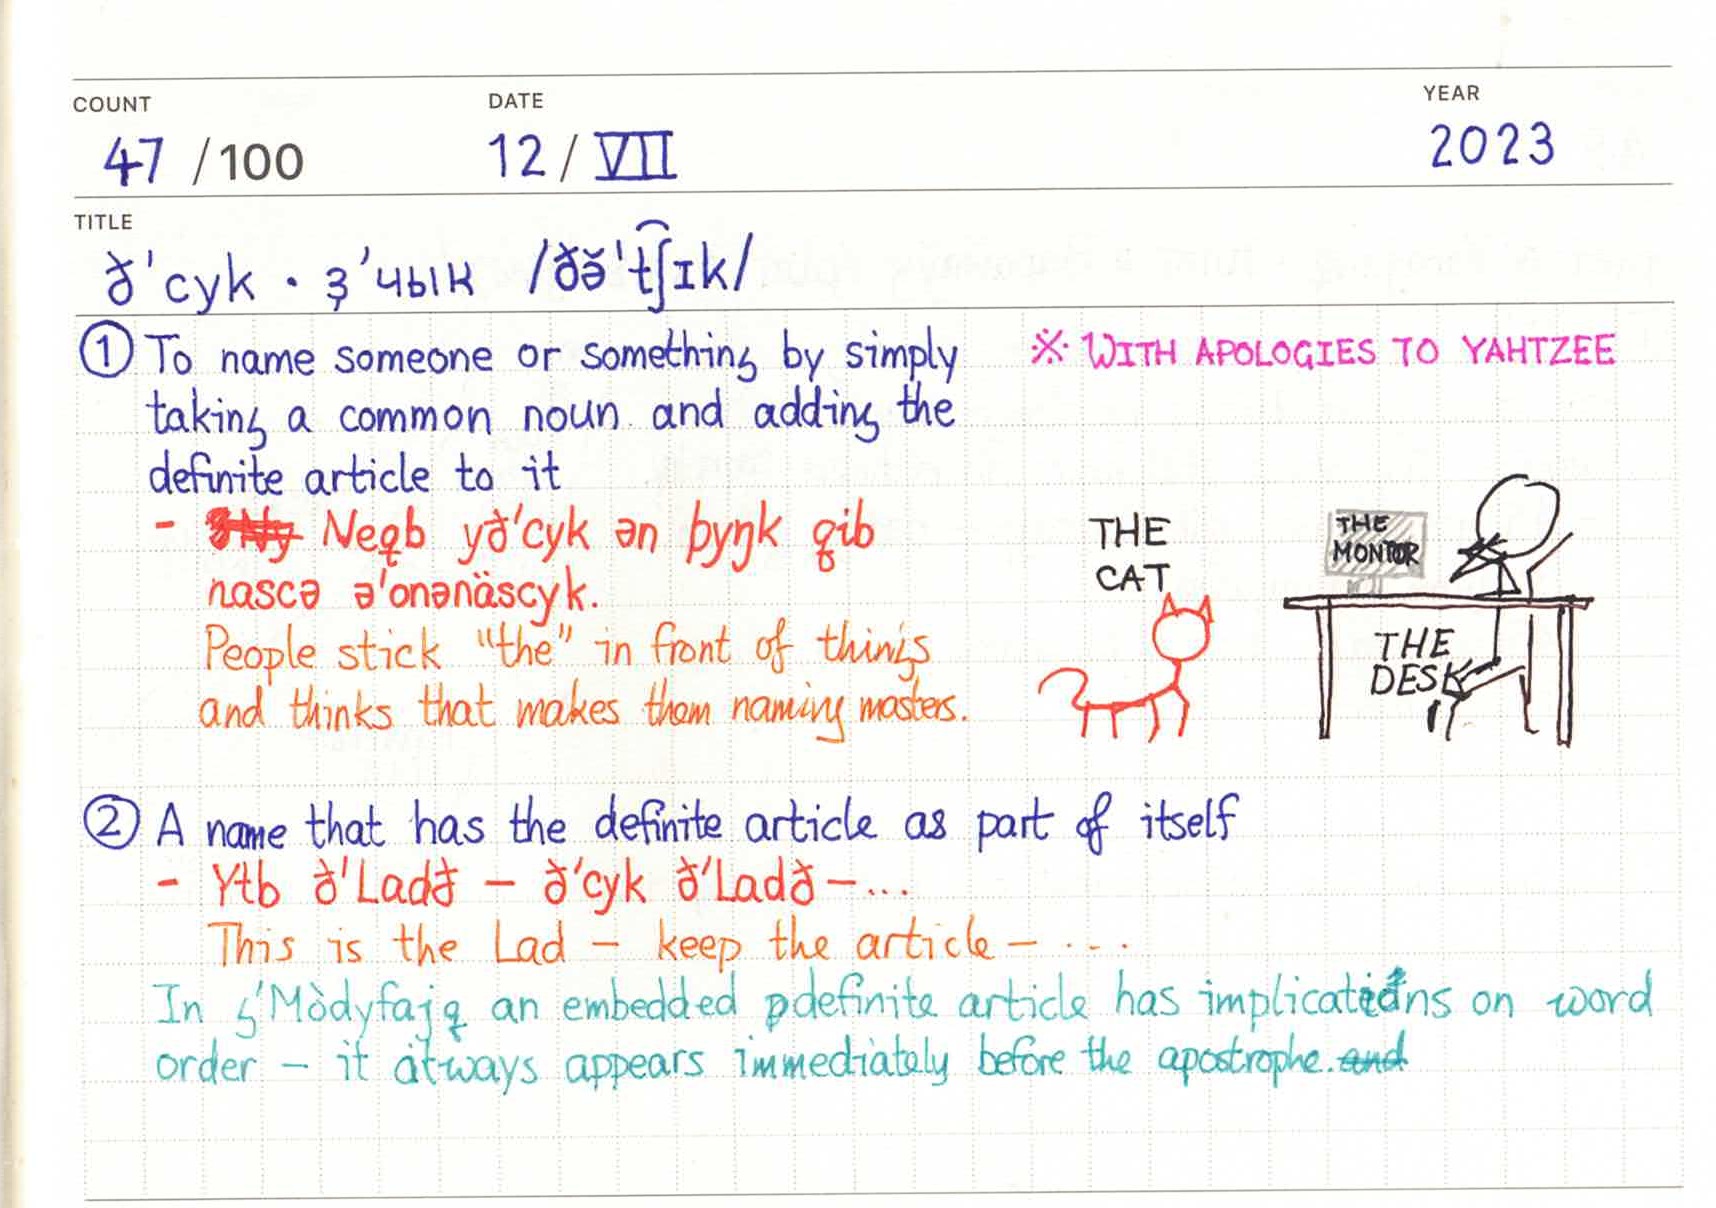 COUNT DATE YEAR
47 /100 12/VII 2023
TITLE
ð'cyk · ҙ'чык /ðə̆'t͡ʃɪk/
① To name someone or something by simply
taking a common noun and adding the
definite article to it
※ WITH APOLOGIES TO YAHTZEE
- Neqb yð'cyk ən þyŋk qib
nascə ə'onənäscyk.
People stick "the" in front of things
and thinks that makes them naming masters.
THE
CAT
THE
MONITOR
THE
DESK
② A name that has the definite article as part of itself
- Ytb ð'Ladð – ð'cyk ð'Ladð –...
This is the Lad – keep the article – ...
In ʒ'Mòdyfajq an embedded definite article has implications on word
order – it always appears immediately before the apostrophe. and